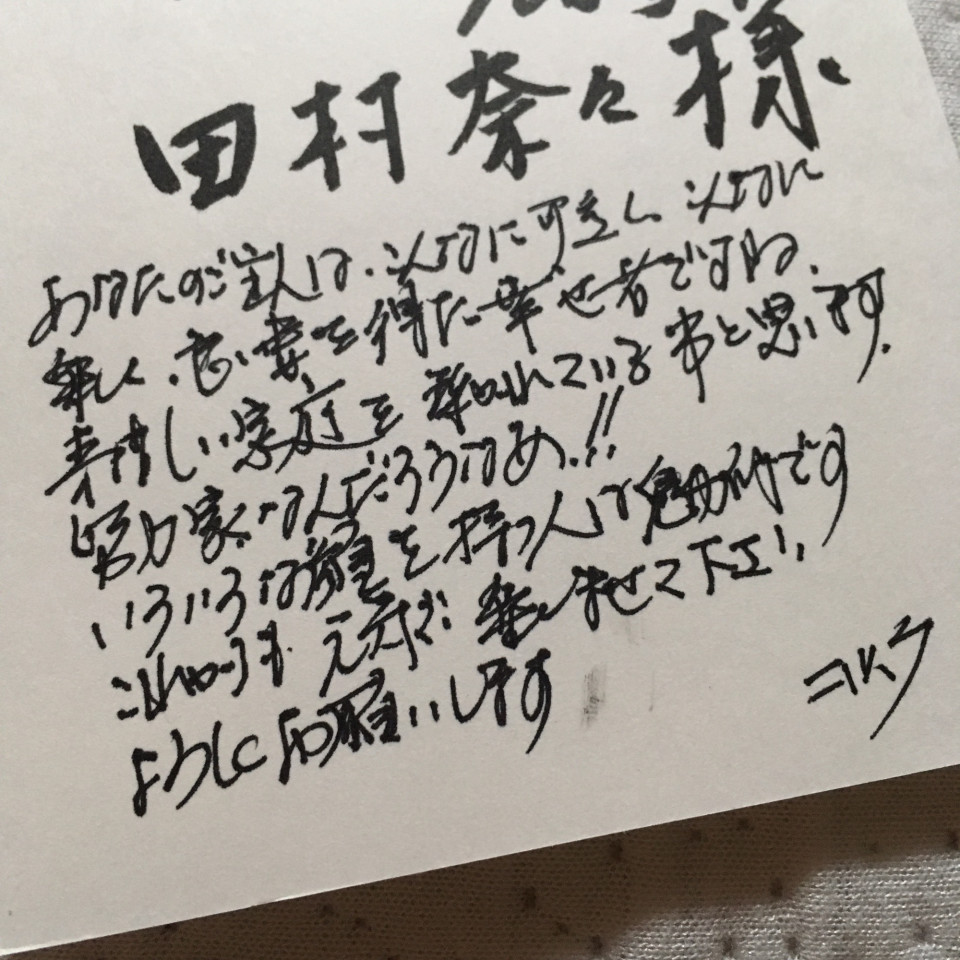 田村奈々様
あなたのご主人は、こんなに可愛く こんなに
楽しく、良い妻を得た幸せ者ですね、
素晴しい家庭を築かれている事と思います。
努力家なんだろうなあ!!
いろいろな顔を持つ人は魅力的です
これからも 元気で 楽しませて下さい
ようしくお願いします
コロッケ